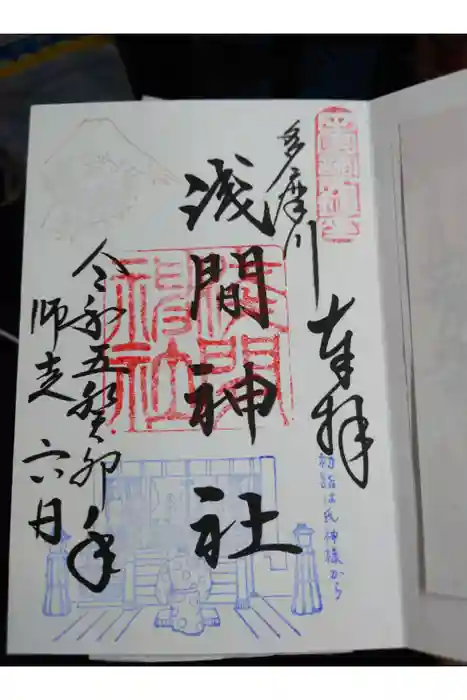 奉拝
多摩川
浅間神社
令和五癸卯年
師走六日
浅間神社
初詣は氏神様から